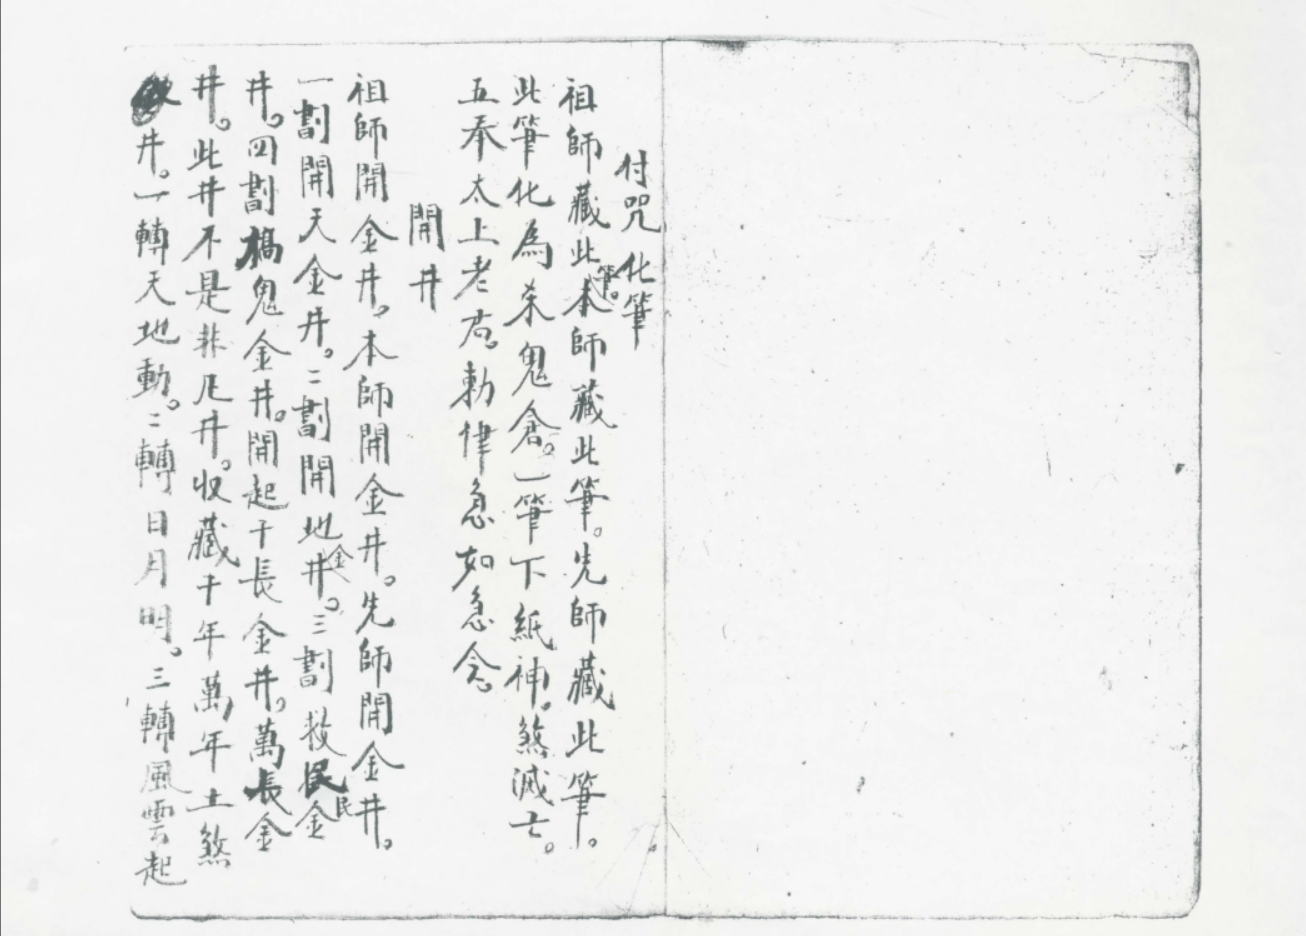 付咒化筆
祖師藏此筆。本師藏此筆。先師藏此筆。
此筆化為杀鬼倉。一筆下紙神。煞滅亡。
五奉太上老君。勅律急如急念。
開井
祖師開金井。本師開金井。先師開金井。
一劃開天金井。二劃開地金井。三劃救民金
井。四劃鬼金井。開起千長金井。萬長金
井。此井不是非凡井。收藏千年萬年土煞
井。一轉天地動。二轉日月明。三轉風雲起